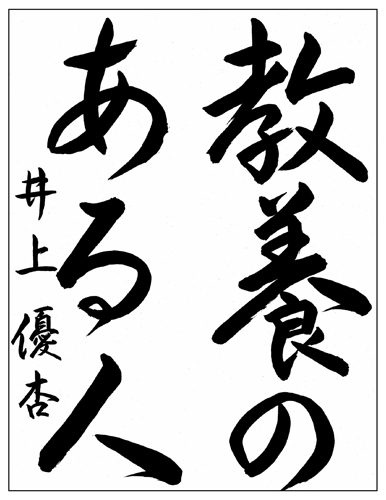 教養の
ある人
井上優杏